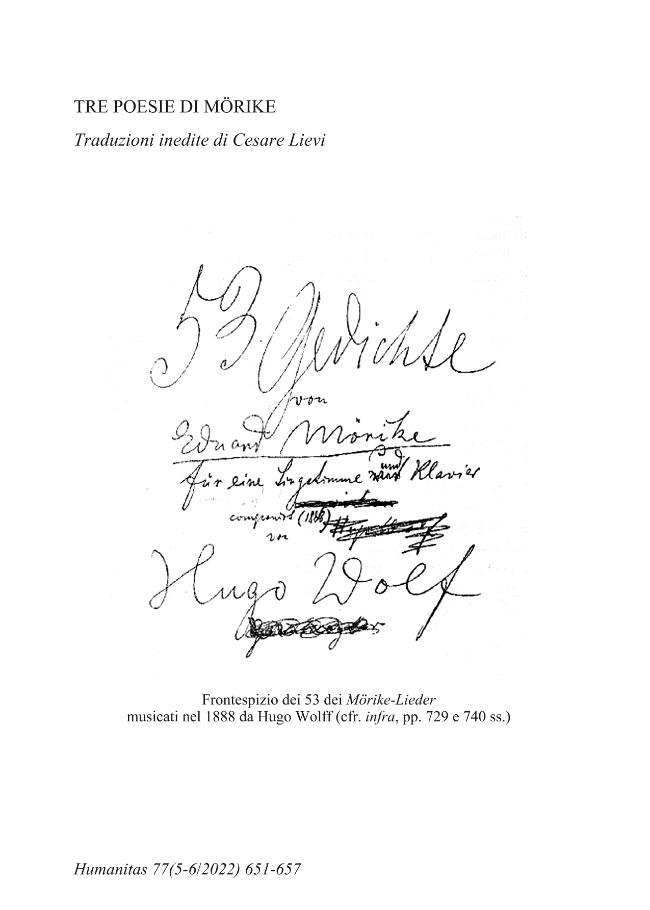 TRE POESIE DI MÖRIKE
Traduzioni inedite di Cesare Lievi
53 Gedichte
von
Eduard Mörike
für eine Singstimme und Klavier
componirt (1888)
von
Hugo Wolf
Frontespizio dei 53 dei Mörike-Lieder
musicati nel 1888 da Hugo Wolff (cfr. infra, pp. 729 e 740 ss.)
Humanitas 77(5-6/2022) 651-657